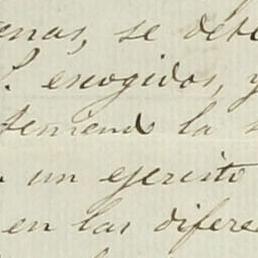 enas, se debe
S. escogidos, y
teniendo la s
un ejercito
en las difere